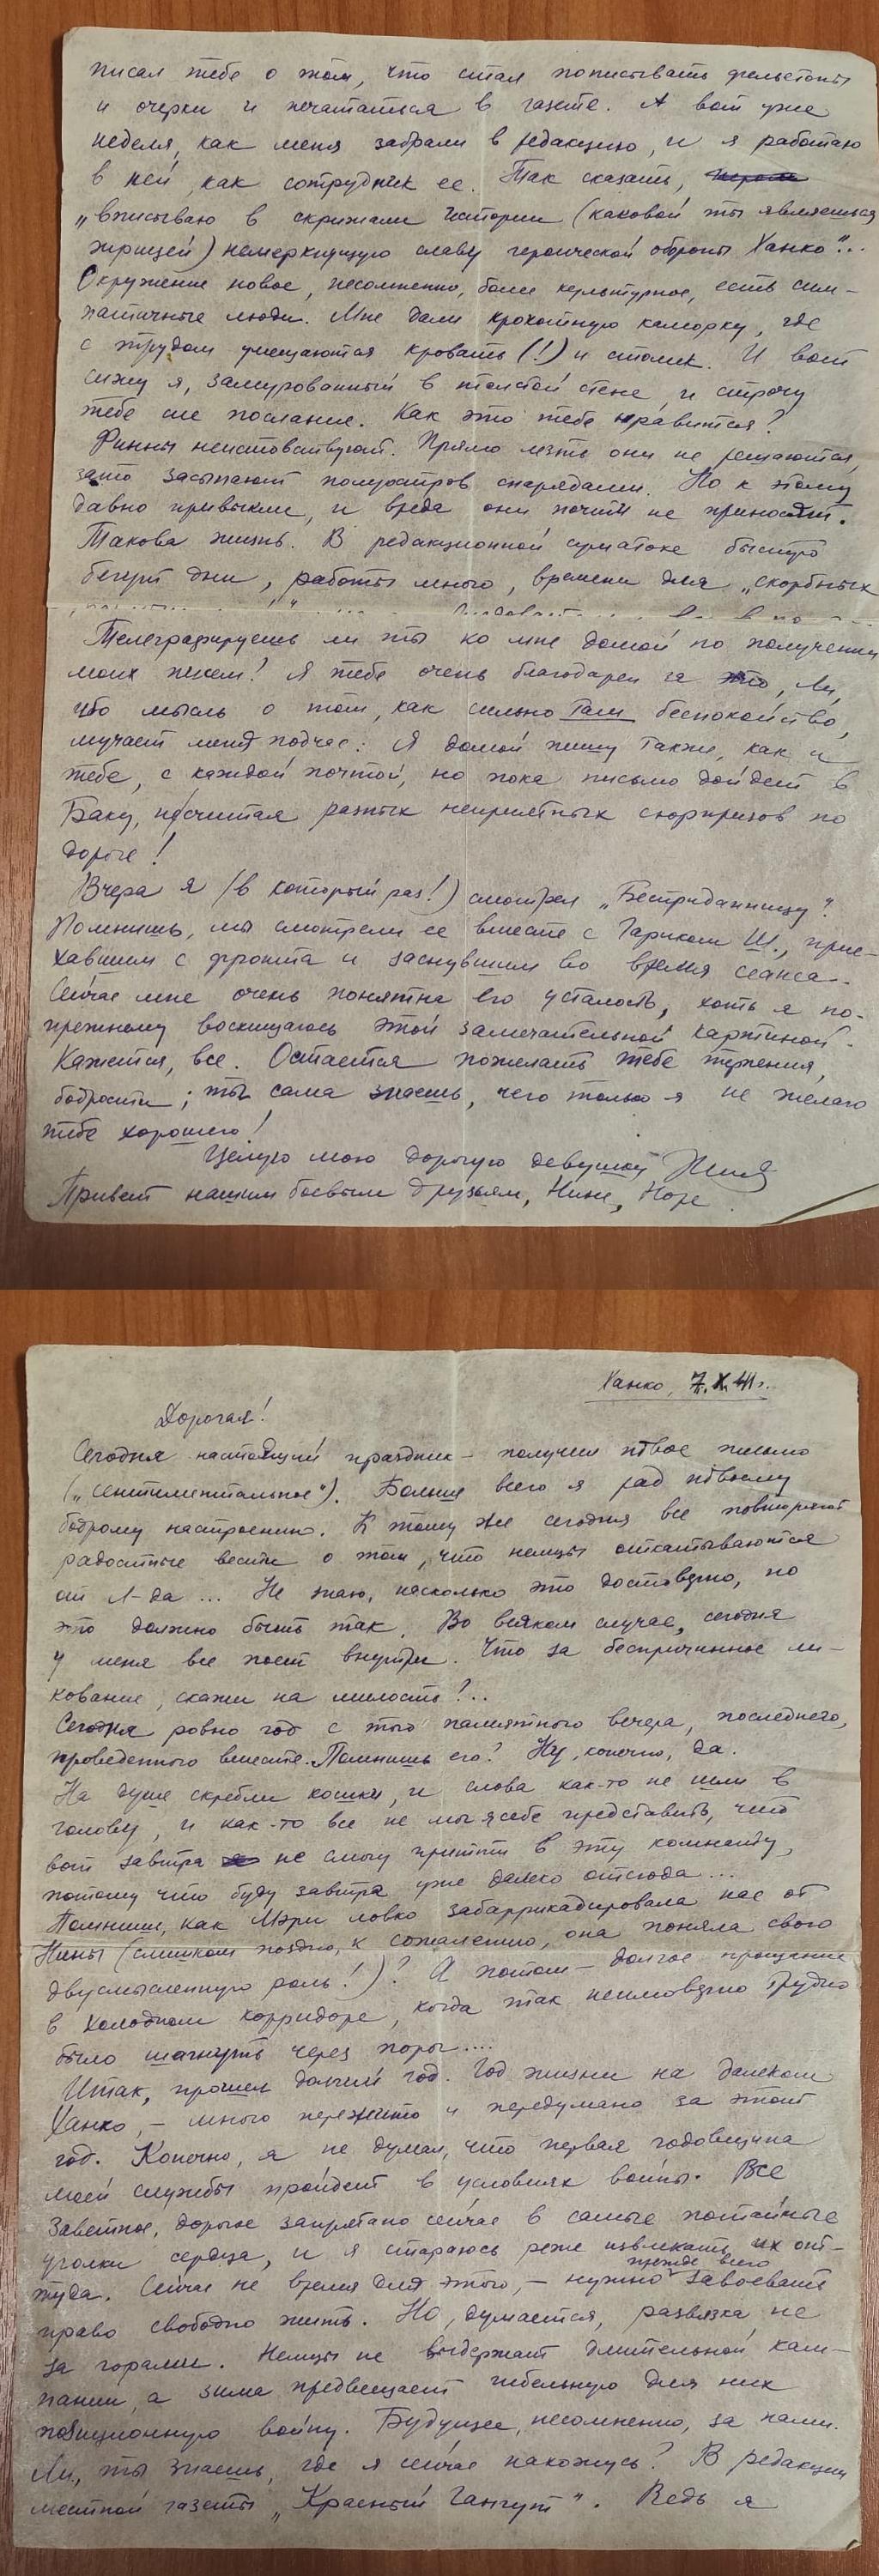 писал тебе о том, что стал пописывать фельетоны
и очерки и печататься в газете. А вот уже
неделя, как меня забрали в редакцию, и я работаю
в ней, как сотрудник ее. Так сказать,
„вписываю в скрижали истории (каковой ты являешься
жрицей) немеркнущую славу героической обороны Ханко"...
Окружение новое, несомненно, более культурное, есть сим-
патичные люди. Мне дали крохотную каморку, где
с трудом умещаются кровать (!) и столик. И вот
сижу я, замурованный в толстой стене, и строчу
тебе сие послание. Как это тебе нравится?
Финны неистовствуют. Прямо лезть они не решаются,
зато засыпают полуостров снарядами. Но к этому
давно привыкли, и вреда они почти не приносят.
Такова жизнь. В редакционной суматохе быстро
бегут дни, работы много, времени для „скорбных
Телеграфируешь ли ты ко мне домой по получении
моих писем? Я тебе очень благодарен за это, Ли,
ибо мысль о том, как сильно там беспокойство,
мучает меня подчас. Я домой пишу также, как и
тебе, с каждой почтой, но пока письмо дойдет в
Баку, не считая разных неприятных сюрпризов по
дороге!
Вчера я (в который раз!) смотрел „Бесприданницу".
Помнишь, мы смотрели ее вместе с Гариком Ш., прие-
хавшим с фронта и заснувшим во время сеанса.
Сейчас мне очень понятна его усталость, хоть я по-
прежнему восхищаюсь этой замечательной картиной.
Кажется, все. Остается пожелать тебе терпения,
бодрости; ты сама знаешь, чего только я не желаю
тебе хорошего!
Целую мою дорогую девушку
Привет нашим боевым друзьям, Нине, Норе.
Ханко, 7.X.41г.
Дорогая!
Сегодня настоящий праздник – получил твое письмо
(„сентиментальное"). Больше всего я рад твоему
бодрому настроению. К тому же сегодня все повторяют
радостные вести о том, что немцы откатываются
от Л-да ... Не знаю, насколько это достоверно, но
это должно быть так. Во всяком случае, сегодня
у меня все поет внутри. Что за беспричинное ли-
кование, скажи на милость?..
Сегодня ровно год с того памятного вечера, последнего,
проведенного вместе. Помнишь его? Ну, конечно, да.
На душе скребли кошки, и слова как-то не шли в
голову, и как-то все не мог я себе представить, что
вот завтра не смогу притти в эту комнату,
потому что буду завтра уже далеко отсюда...
Помнишь, как Мэри ловко забаррикадировала нас от
Нины (слишком поздно, к сожалению, она поняла свою
двусмысленную роль!)? А потом – долгое прощание
в холодном корридоре, когда так неимоверно трудно
было шагнуть через порог....
Итак, прошел долгий год. Год жизни на далеком
Ханко, – много пережито и передумано за этот
год. Конечно, я не думал, что первая годовщина
моей службы пройдет в условиях войны. Все
заветное, дорогое запрятано сейчас в самые потайные
уголки сердца, и я стараюсь реже извлекать их от-
туда. Сейчас не время для этого, – нужно прежде всего завоевать
право свободно жить. Но, думается, развязка не
за горами. Немцы не выдержат длительной кам-
пании, а зима предвещает гибельную для них
позиционную войну. Будущее, несомненно, за нами.
Ли, ты знаешь, где я сейчас нахожусь? В редакции
местной газеты „Красный Гангут". Ведь я